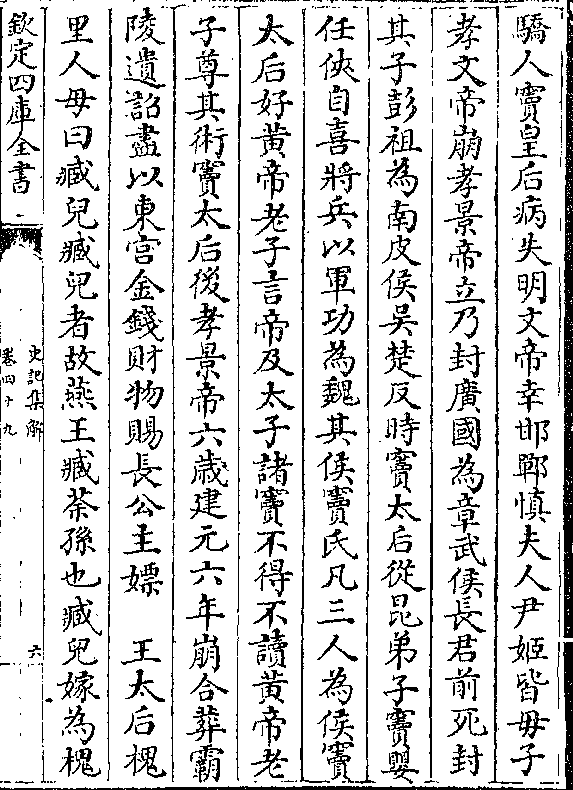 驕人竇皇后病失明文帝幸邯鄲慎夫人尹姬皆毋子
孝文帝崩孝景帝立乃封廣國為章武侯長君前死封
其子彭祖為南皮侯吳楚反時竇太后從昆弟子竇嬰
任俠自喜將兵以軍功為魏其侯竇氏凡三人為侯竇
太后好黃帝老子言帝及太子諸竇不得不讀黃帝老
子尊其術竇太后後孝景帝六歲建元六年崩合葬霸
陵遺詔盡以東宮金錢財物賜長公主嫖　王太后槐
里人母曰臧兒臧兒者故燕王臧荼孫也臧兒嫁為槐
欽定四庫全書
史記集解
卷四十九
六